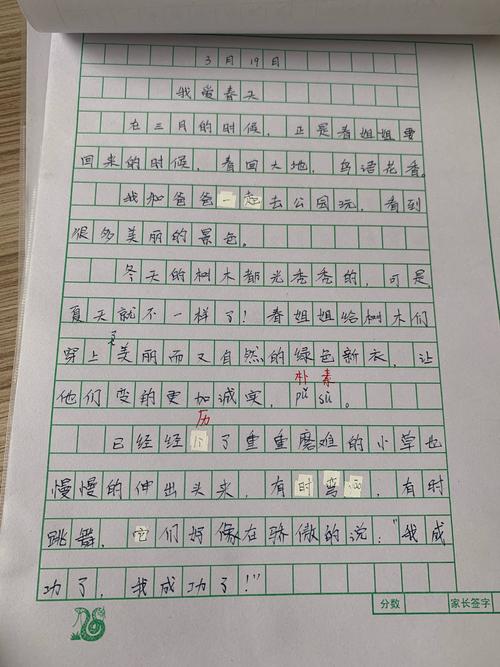 3月19日
我爱春天
在三月的时候,正是春姐姐要
回来的时候,春回大地,鸟语花香。
我和爸爸一起去公园玩,看到
很多美丽的景色。
冬天的树木都光秃秃的,可是
夏天就不一样了!春姐姐给树木们
穿上美丽而又自然的绿色新衣,让
朴素
他们变的更加诚实,pǔ sù。
历
已经经了重重磨难的小草也
慢慢的伸出头来,有时弯,有时
跳舞。它们好像在骄傲的说:“我成
功了,我成功了!”
分数
家长签字